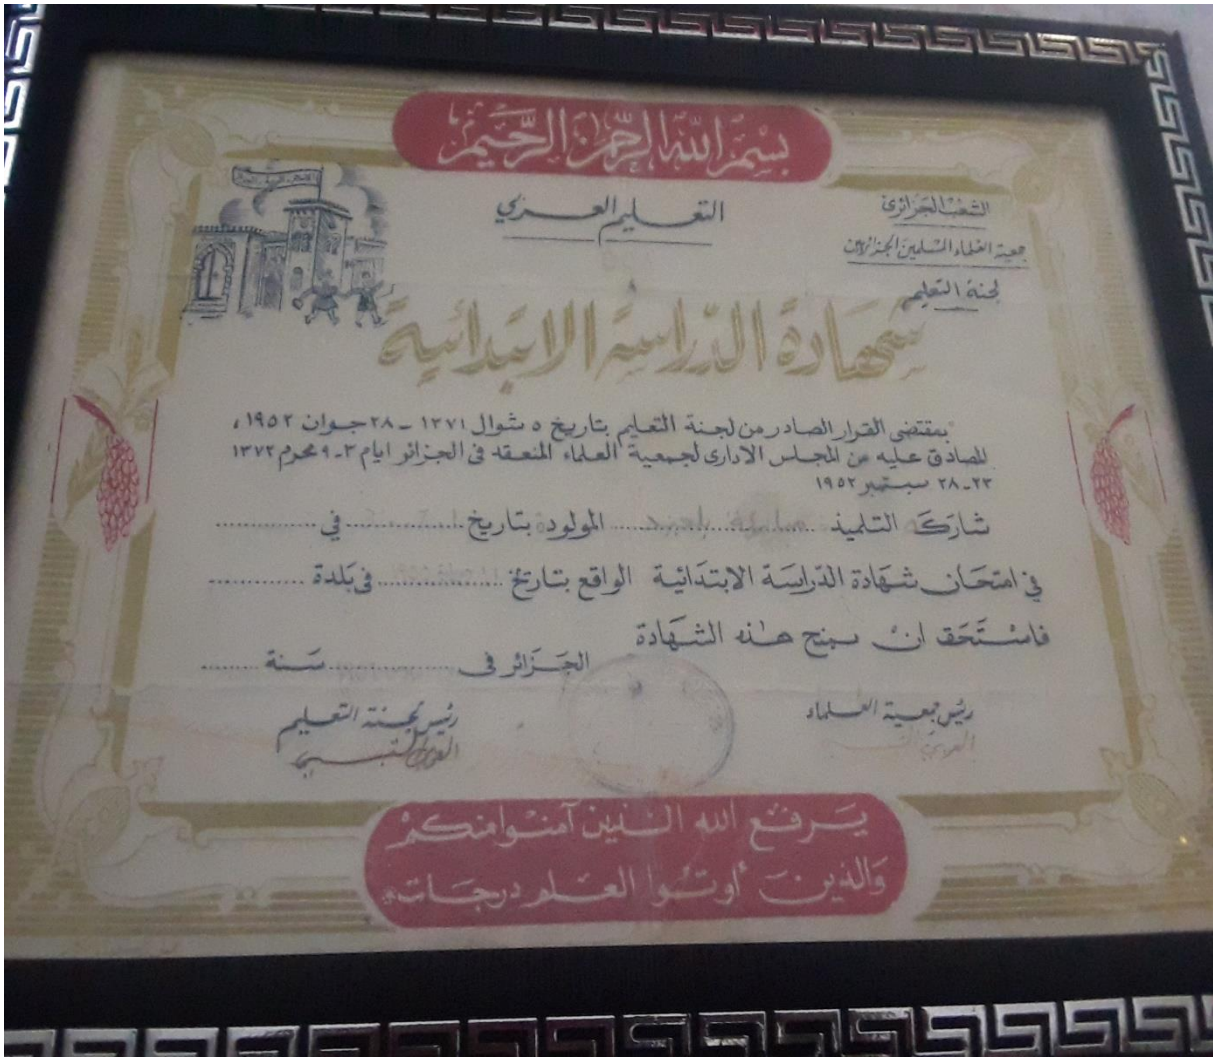 بسم الله الرحمن الرحيم
الشعب الجزائري
جمعية العلماء المسلمين الجزائريين
لجنة التعليم
التعليم العربي
شهادة الدراسة الابتدائية
بمقتضى القرار الصادر من لجنة التعليم بتاريخ ٥ شوال ١٣٧١ - ٢٨ جوان ١٩٥٢،
المصادق عليه من المجلس الادارى لجمعية العلماء المنعقد فى الجزائر ايام ٣-٩ محرم ١٣٧٢
٢٣-٢٨ سبتمبر ١٩٥٢
شاركت التلميذ ........ المولودة بتاريخ ........ في ........
في امتحان شهادة الدراسة الابتدائية الواقع بتاريخ ........ فى بلدة ........
فاستحق ان يمنح هذه الشهادة
الجزائر فى ........ سنة ........
رئيس جمعية العلماء
رئيس لجنة التعليم
يرفع الله الذين آمنوا منكم
والذين أوتوا العلم درجات